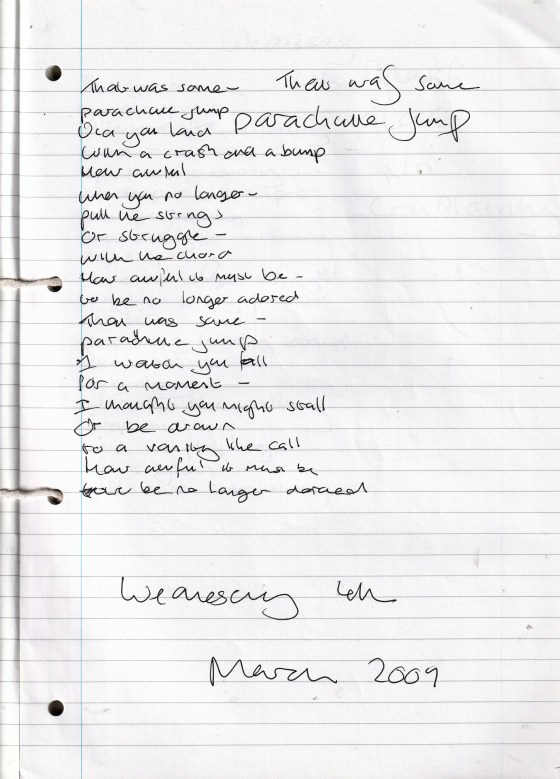 That was some – That was some
parachute jump parachute jump
Did you land
With a crash and a bump
How awful
when you no longer –
pull the strings
Or struggle –
with the chord
How awful it must be –
to be no longer adored
That was some –
parachute jump
I watch you fall
for a moment –
I thought you might stall
Or be drawn
to a vanity like call
How awful it must be
be no longer adored
Wednesday 4th
March 2009